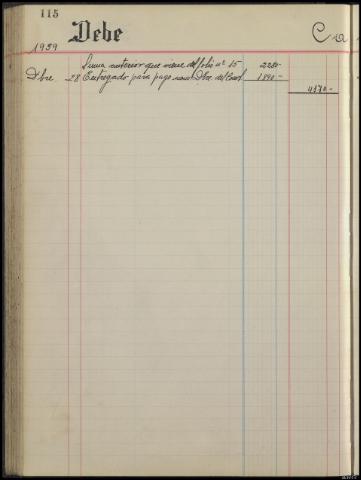 115
Debe
Ca
1959
Suma anterior que viene del folio nº 15 2280-
Dbre 28 Entregado para pago Dbre del 1890-
4170-